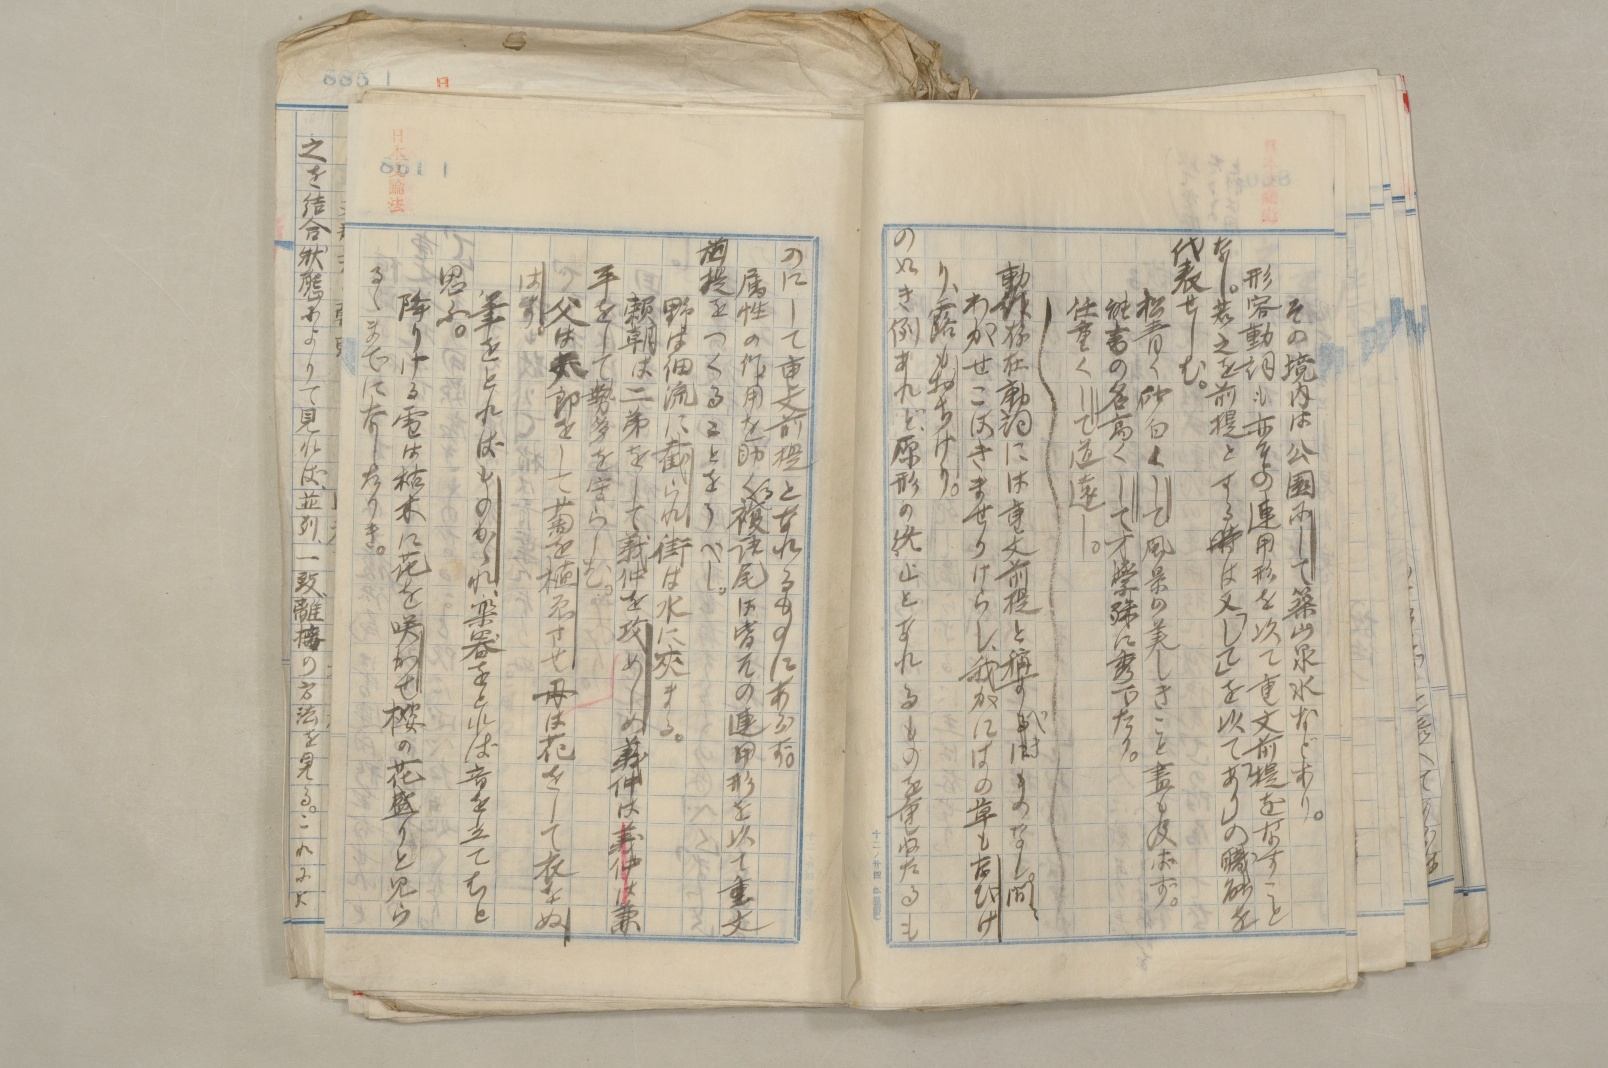 その境内は公園にして築山泉水などあり。
形容動詞も亦その連用形を以て重文前提をなすこと
なし。若之を前提とする時は又「して」を以て「あり」の職能を
代表せしむ。
松青く砂白くして風景の美しきこと畫も及ばず。
能書の名高くして才學殊に秀でたり。
任重くして道遠し。
動作存在動詞には重文前提と稱すべきものなし。間々
わがせこはきませりけらし、我がにはの草もなびけ
り、露もおちけり。
の如き例あれど、原形の終止となれるものを重ねたるも
のにして重文前提となれるものにあらず。
属性の作用を助くる複語尾は皆その連用形を以て重文
前提をつくることをうべし。
野は細流に截られ街は水に夾まる。
頼朝は二弟をして義仲を攻めしめ義仲は義仲は兼
平をして勢多を守らしむ。
父は太郎をして菊を植ゑさせ母は花をして衣をぬ
はす。
筆をとればものかゝれ、楽器をとれば音を立てむと
思ふ。
降りける雪は枯木に花を咲かせ櫻の花盛りと見ら
るゝまでになしたりき。
之を結合状態によりて見れば並列一致離接の方法を見る。これによ
日本文論法